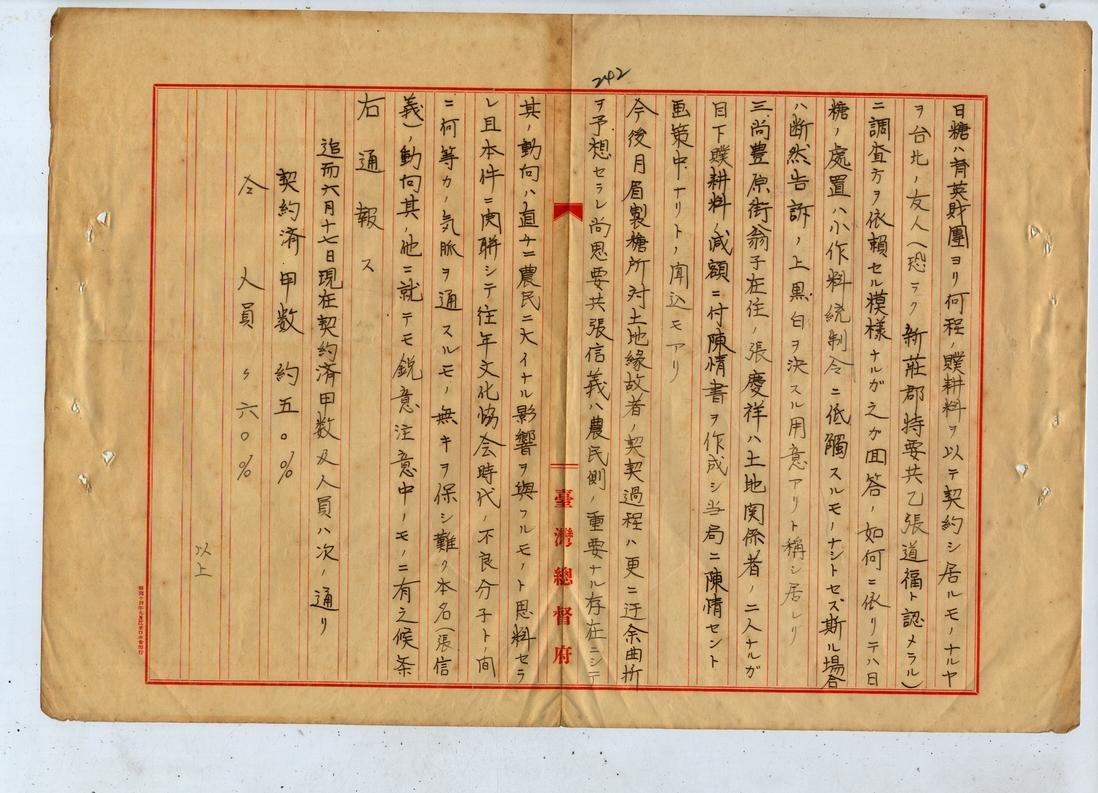 242
日糖ハ育英財團ヨリ何程ノ贌耕料ヲ以テ契約シ居ルモノナルヤ
ヲ台北ノ友人(恐ラク新莊郡特要共乙張道福ト認メラル)
ニ調査方ヲ依賴セル模様ナルガ之カ回答ノ如何ニ依リテハ日
糖ノ處置ハ小作料統制令ニ低觸スルモノナシトセズ斯ル場合
ハ断然告訴ノ上黒白ヲ決スル用意アリト稱シ居レリ
三、尚豊原街翁子在住ノ張慶祥ハ土地関係者ノ一人ナルガ
目下贌耕料ノ減額ニ付陳情書ヲ作成シ当局ニ陳情セント
画策中ナリトノ聞込モアリ
今後月眉製糖所対土地緣故者ノ契契過程ハ更ニ迂余曲折
ヲ予想セラレ尚思要共張信義ハ農民側ノ重要ナル存在ニシテ
其ノ動向ハ直チニ農民ニ大イナル影響ヲ與フルモノト思料セラ
レ且本件ニ関聯シテ往年文化協会時代ノ不良分子トノ間
ニ何等カノ気脈ヲ通スルモノ無キヲ保シ難ク本名(張信
義)ノ動向其ノ他ニ就テモ鋭意注意中ノモノニ有之候条
右通報ス
追而六月十七日現在契約済甲数及人員ハ次ノ通リ
契約済甲数 約五〇%
仝 人員 〃六〇%
以上
臺灣總督府